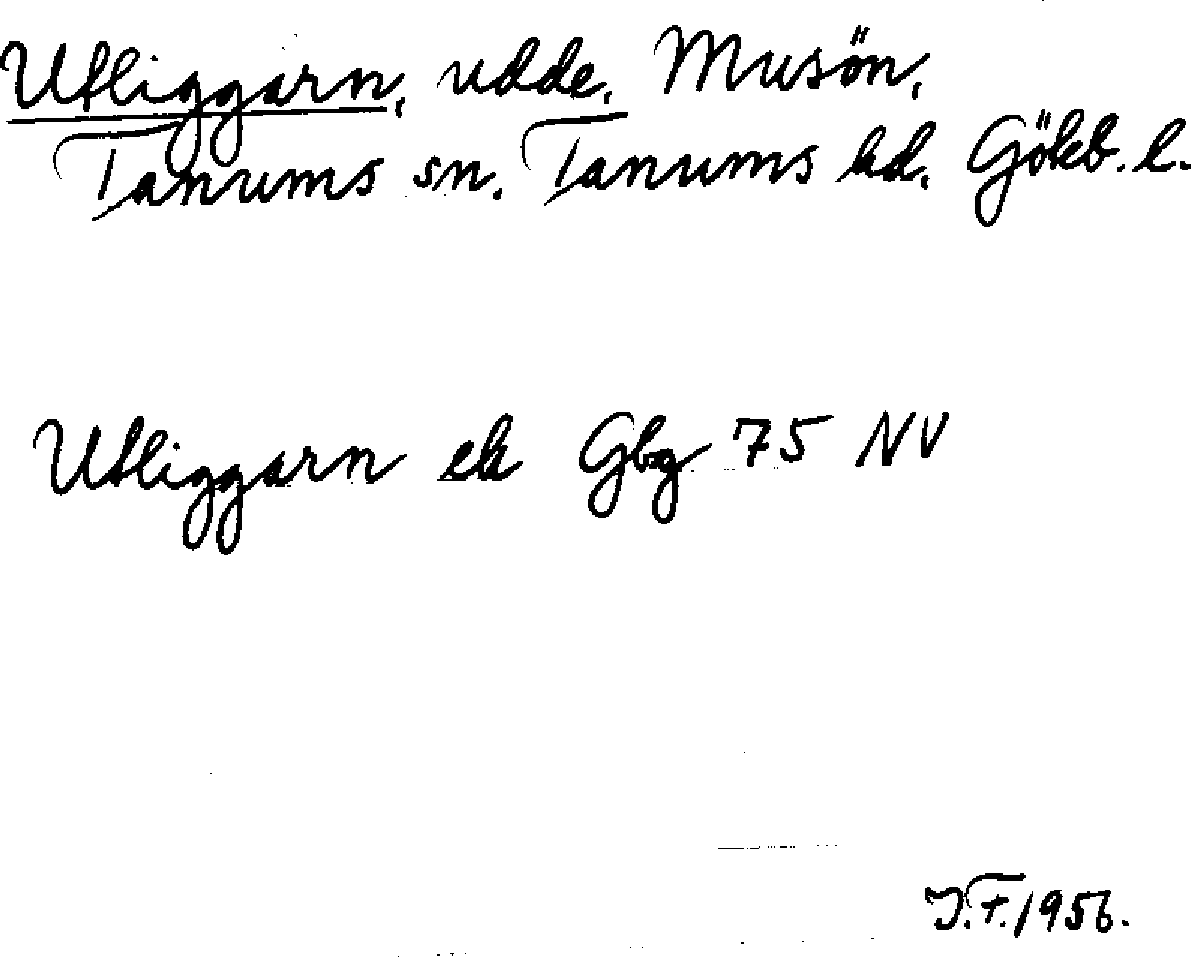 Utliggarn, udde, Musön,
Tanums sn. Tanums hd. Gökb. l.
Utliggarn ek Gbg 75 NV
I.F. 1956.